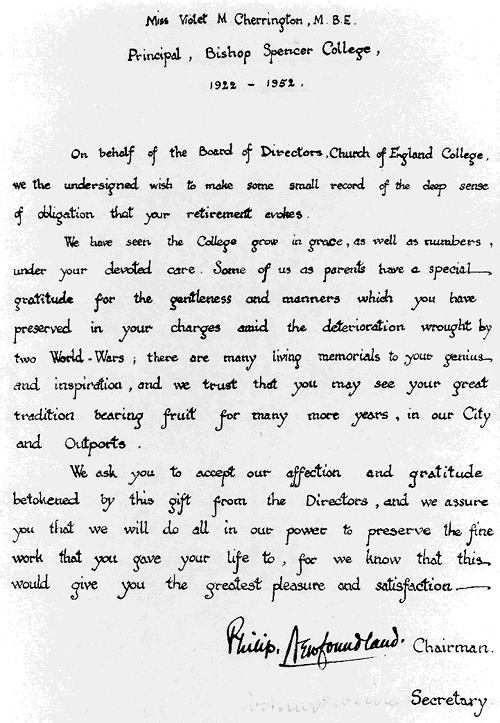 Miss Violet M Cherrington, M.B.E.
Principal, Bishop Spencer College,
1922 - 1952.
On behalf of the Board of Directors, Church of England College,
we the undersigned wish to make some small record of the deep sense
of obligation that your retirement evokes.
We have seen the College grow in grace, as well as numbers,
under your devoted care. Some of us as parents have a special
gratitude for the gentleness and manners which you have
preserved in your charges amid the deterioration wrought by
two World-Wars; there are many living memorials to your genius
and inspiration, and we trust that you may see your great
tradition bearing fruit for many more years, in our City
and Outports.
We ask you to accept our affection and gratitude
betokened by this gift from the Directors, and we assure
you that we will do all in our power to preserve the fine
work that you gave your life to, for we know that this
would give you the greatest pleasure and satisfaction
Philip. Newfoundland. Chairman.
Secretary